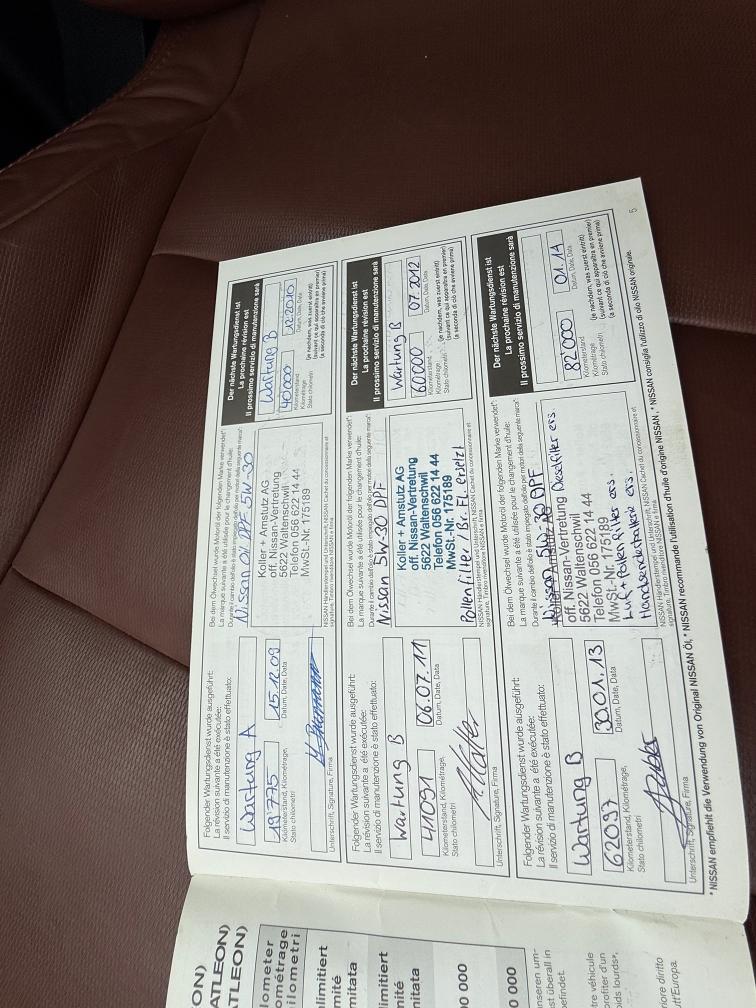 Folgender Wartungsdienst wurde ausgeführt:
La révision suivante a été exécutée:
Il servizio di manutenzione è stato effettuato:
Wartung A
19'775
15.12.09
Kilometerstand, Kilométrage,
Stato chilometri
Datum, Date, Data
Unterschrift, Signature, Firma
Bei dem Ölwechsel wurde Motoröl der folgenden Marke verwendet*:
La marque suivante a été utilisée pour le changement d'huile:
Durante il cambio dell'olio è stato impiegato dell'olio per motori della seguente marca*:
Nissan Oil DPF 5W-30
Koller + Amstutz AG
off. Nissan-Vertretung
5622 Waltenschwil
Telefon 056 622 14 44
MwSt.-Nr. 175189
NISSAN Händlerstempel und Unterschrift, NISSAN Cachet du concessionnaire et
signature, Timbro rivenditore NISSAN e firma
Der nächste Wartungsdienst ist
La prochaine révision est
Il prossimo servizio di manutenzione sarà
Wartung B
40'000
12.2010
Kilometerstand
Kilométrage
Stato chilometri
Datum, Date, Data
(je nachdem, was zuerst eintritt)
(suivant ce qui apparaîtra en premier)
(a seconda di ciò che avviene prima)
Folgender Wartungsdienst wurde ausgeführt:
La révision suivante a été exécutée:
Il servizio di manutenzione è stato effettuato:
Wartung B
41091
06.07.11
Kilometerstand, Kilométrage,
Stato chilometri
Datum, Date, Data
Unterschrift, Signature, Firma
Bei dem Ölwechsel wurde Motoröl der folgenden Marke verwendet*:
La marque suivante a été utilisée pour le changement d'huile:
Durante il cambio dell'olio è stato impiegato dell'olio per motori della seguente marca*:
Nissan 5W-30 DPF
Koller + Amstutz AG
off. Nissan-Vertretung
5622 Waltenschwil
Telefon 056 622 14 44
MwSt.-Nr. 175189
Pollenfilter Br. Fl. ersetzt
NISSAN Händlerstempel und Unterschrift, NISSAN Cachet du concessionnaire et
signature, Timbro rivenditore NISSAN e firma
Der nächste Wartungsdienst ist
La prochaine révision est
Il prossimo servizio di manutenzione sarà
Wartung B
60000
07.2012
Kilometerstand
Kilométrage
Stato chilometri
Datum, Date, Data
(je nachdem, was zuerst eintritt)
(suivant ce qui apparaîtra en premier)
(a seconda di ciò che avviene prima)
Folgender Wartungsdienst wurde ausgeführt:
La révision suivante a été exécutée:
Il servizio di manutenzione è stato effettuato:
Wartung B
62097
30.01.13
Kilometerstand, Kilométrage,
Stato chilometri
Datum, Date, Data
Unterschrift, Signature, Firma
Bei dem Ölwechsel wurde Motoröl der folgenden Marke verwendet*:
La marque suivante a été utilisée pour le changement d'huile:
Durante il cambio dell'olio è stato impiegato dell'olio per motori della seguente marca*:
Nissan 5W-30 DPF
Koller + Amstutz AG
off. Nissan-Vertretung Dieselfilter ers.
5622 Waltenschwil
Telefon 056 622 14 44
MwSt.-Nr. 175189
Luft + Pollen filter ers.
Handsenderbatterie ers
NISSAN Händlerstempel und Unterschrift, NISSAN Cachet du concessionnaire et
signature, Timbro rivenditore NISSAN e firma
Der nächste Wartungsdienst ist
La prochaine révision est
Il prossimo servizio di manutenzione sarà
82000
01.14
Kilometerstand
Kilométrage
Stato chilometri
Datum, Date, Data
(je nachdem, was zuerst eintritt)
(suivant ce qui apparaîtra en premier)
(a seconda di ciò che avviene prima)
* NISSAN empfiehlt die Verwendung von Original NISSAN Öl, * NISSAN recommande l'utilisation d'huile d'origine NISSAN, * NISSAN consiglia l'utilizzo di olio NISSAN originale.
5
ON)
ATLEON)
TLEON)
ilometer
ométrage
ilometri
limitiert
mité
mitata
limitiert
mité
mitata
0 000
0 000
unseren um-
st überall in
efindet.
tre véhicule
profiter d'un
ids lourds*,
riore diritto
t'Europa.